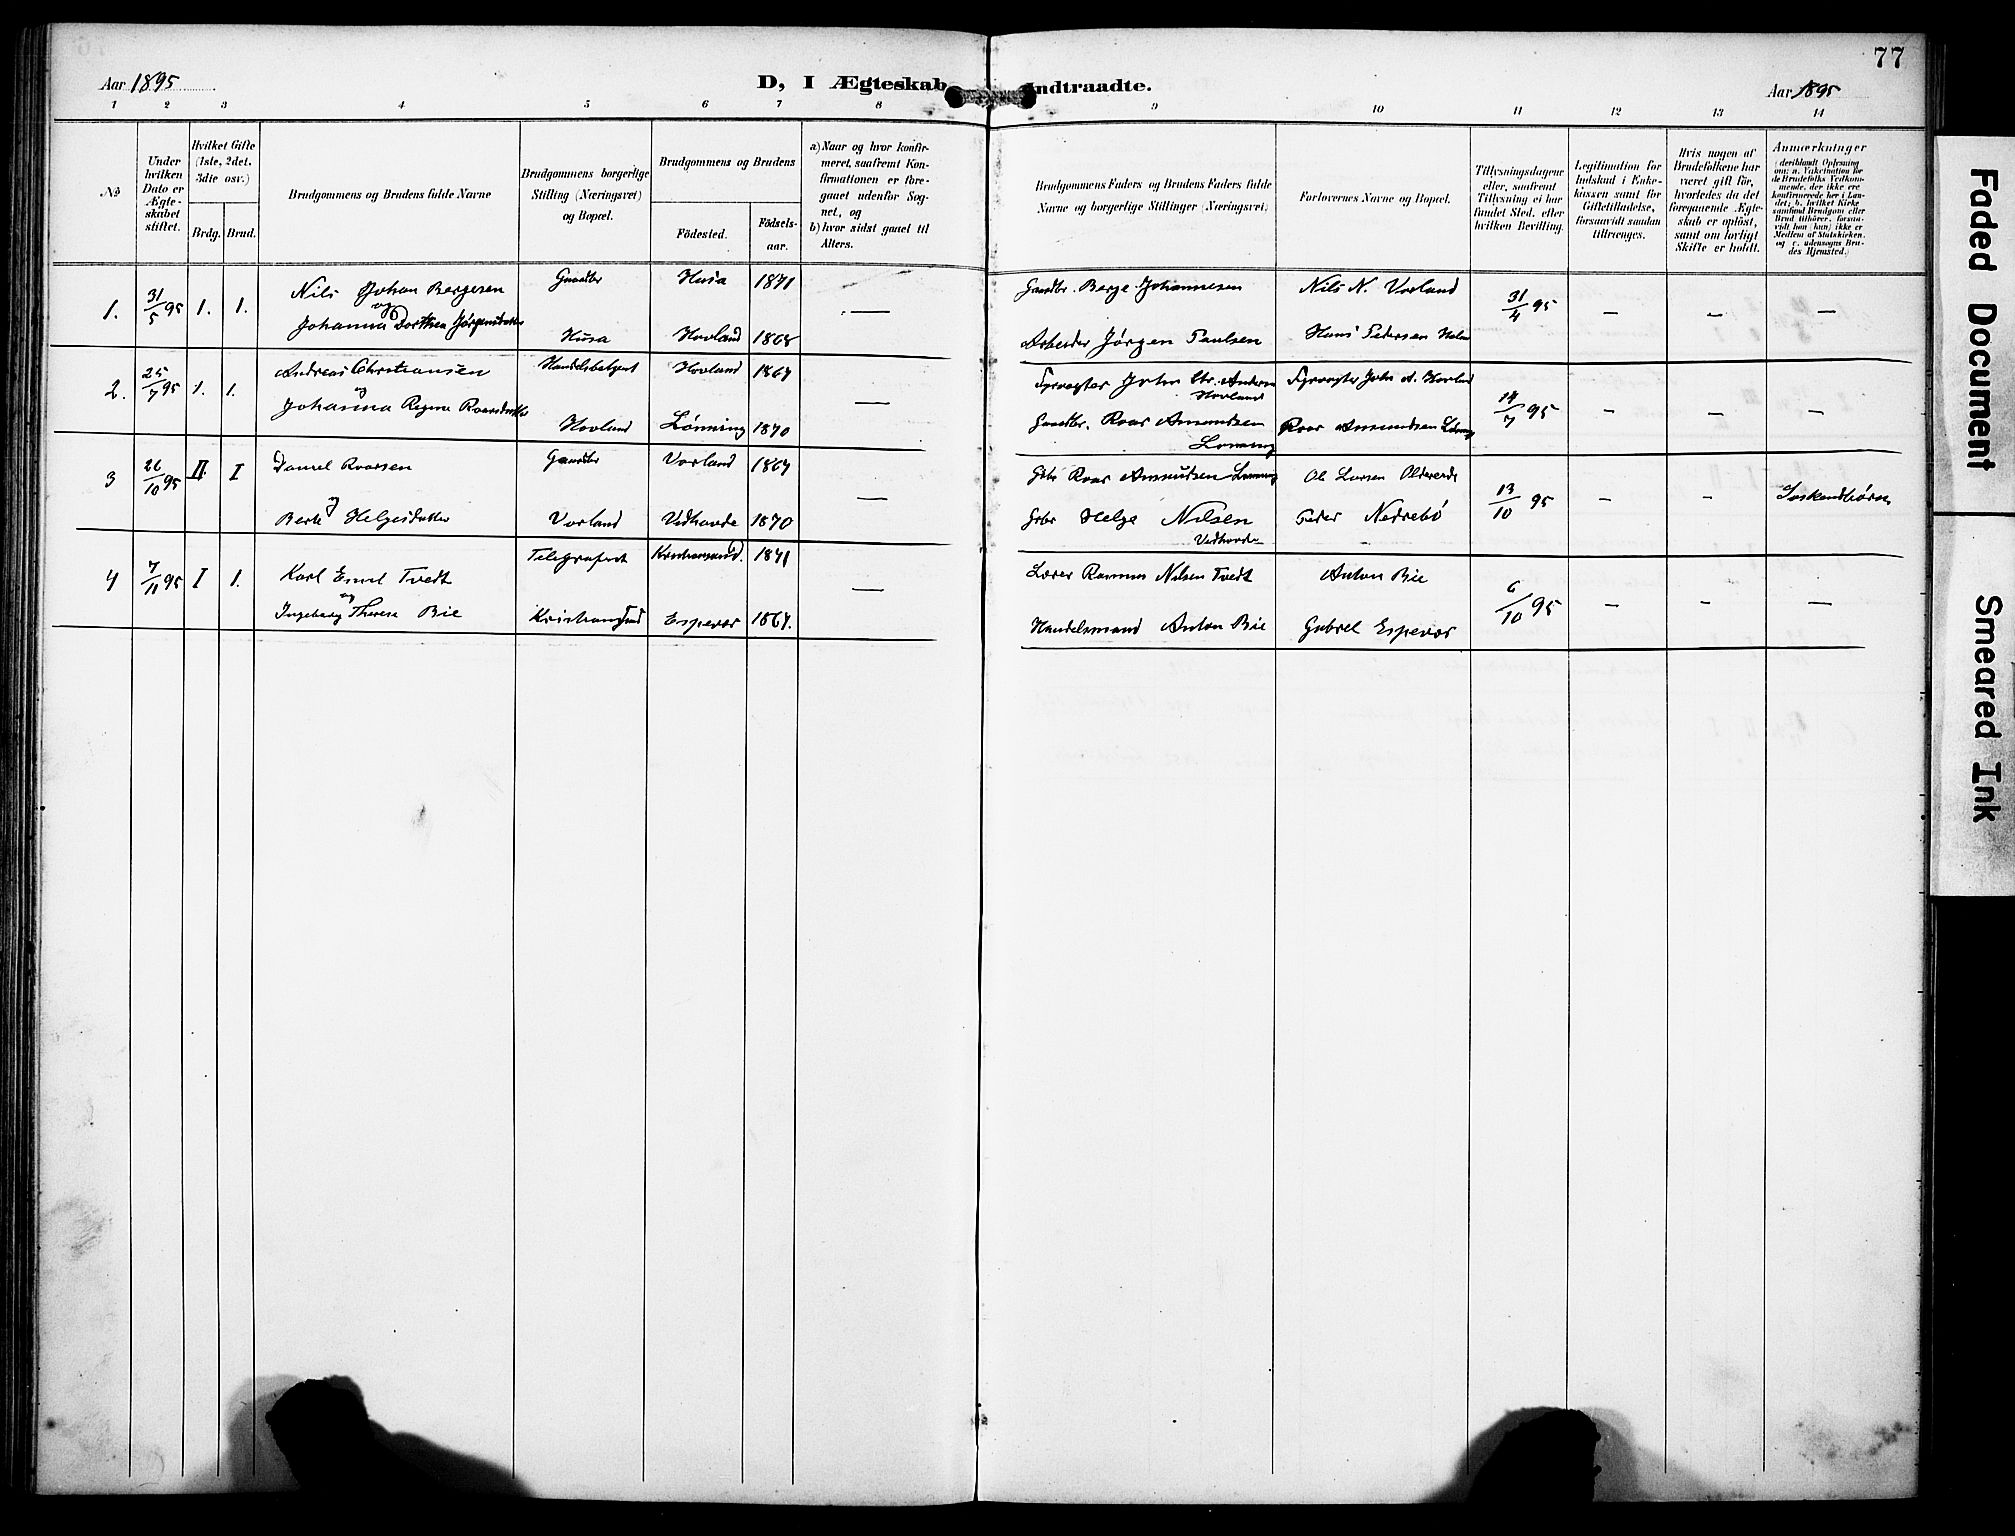 77
Aar 1895
D, I Ægteskab Indtraadte.
Aar 1895
1 2 3 4 5 6 7 8 9 10 11 12 13 14
No
Under hvilken Dato er Ægteskabet stiftet.
Hvilket Gifte (1ste, 2det, 3die osv.)
Brdg. Brud.
Brudgommens og Brudens fulde Navne
Brudgommens borgerlige Stilling (Næringsvei) og Bopæl.
Brudgommens og Brudens
Födested.
Födselsaar.
a) Naar og hvor konfirmeret, saafremt Konfirmationen er foregaaet udenfor Sognet, og
b) hvor sidst gaaet til Alters.
Brudgommens Faders og Brudens Faders fulde Navne og borgerlige Stillinger (Næringsvei)
Forlovernes Navne og Bopæl.
Tillysningsdagene eller, saafremt Tillysning ei har fundet Sted, efter hvilken Bevilling.
Legitimation for Indskud i Enkekassen samt for Giftetilladelse, forsaavidt saadan tiltrænges.
Hvis nogen af Brudefolkene har været gift för, hvorledes da det foregaaende Ægteskab er oplöst, samt om lovligt Skifte er holdt.
Anmærkninger
(deriblandt Oplysning om: a. Vakcination for de Brudefolks Vedkommende, der ikke ere konfirmerede her i Landet; b. hvilket Kirkesamfund Brudgom eller Brud tilhörer, forsaavidt han (hun) ikke er Medlem af Statskirken, og c. udensogns Brudes Hjemsted.)
1. 31/5 95 1. 1. Nils Johan Bergesen Gaardbr Husa 1871 — Gaardbr. Berge Johannesen Nils N. Vorland 31/4 95 — — —
og
Johanna Dorthea Jørgensdatter Husa Hovland 1868 Arbeider Jørgen Paulsen Hans Pedersen
2. 25/7 95 1. 1. Andreas Christiansen Handelsbetjent Hovland 1867 — Fyrvogter John Chr. Andersen Hovland Fyrvogter John A. Hovland 14/7 95 — — —
og
Johanna Regine Roarsdatter Hovland Lønning 1870 Gaardbr. Roar Amundsen Lønning Roar Amundsen
3 26/10 95 II. I Daniel Roarsen Gaardbr Vorland 1867 — Gbr Roar Amundsen Ole Larsen 13/10 95 — —
og
Berte Helgesdatter Vorland Vedhovde 1870 Gbr Helge Nilsen Vedhovde Peder Nedrebö
4 7/11 95 I 1. Karl Emil Tvedt Telegrafist 1871 — Lærer Rasmus Nilsen Tvedt Anton Bie 6/10 95 — — —
og
Ingeborg Therese Bie Kristiansund Espevær 1867. Handelsmand Anton Bie Gabriel Espevær
Faded Document
Smeared Ink